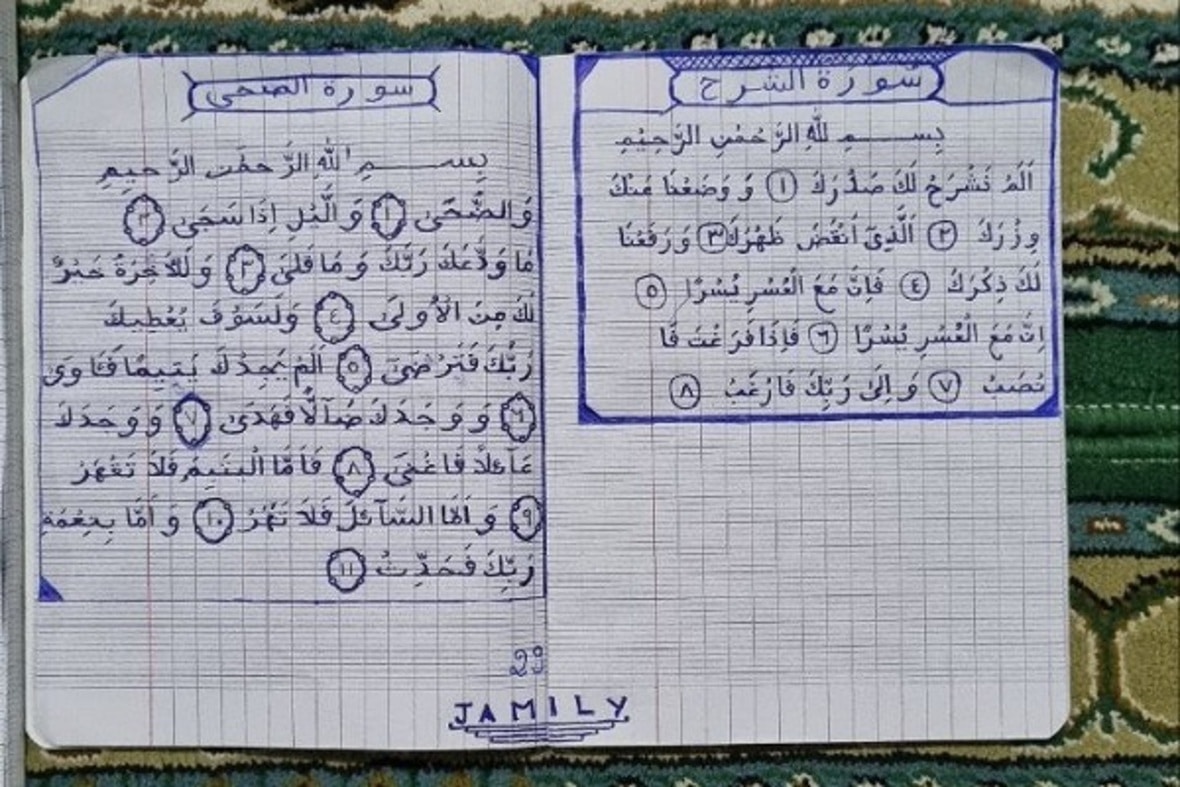 سورة الشرح
بِســـمِ للّٰهِ الرَّحْمٰنِ الرَّحِيْمِ
اَلَمْ نَشْرَحْ لَكَ صَدْرَكَ ١ وَ وَضَعْنَا عَنْكَ
وِزْرَكَ ٢ اَلَّذِىٓ اَنْقَضَ ظَهْرَكَ ٣ وَرَفَعْنَا
لَكَ ذِكْرَكَ ٤ فَاِنَّ مَعَ الْعُسْرِ يُسْرًا ٥
اِنَّ مَعَ الْعُسْرِ يُسْرًا ٦ فَاِذَا فَرَغْتَ فَا
نْصَبْ ٧ وَ اِلَىٰ رَبِّكَ فَارْغَبْ ٨
سورة الضحى
بِســـمِ اللّٰهِ الرَّحمٰن الرَّحِيمِ
وَالضُّحَىٰ ١ وَ الَّيْلِ اِذَا سَجَىٰ ٢
مَا وَدَّعَكَ رَبُّكَ وَ مَا قَلَىٰ ٣ وَ لَلْاَخِرَةُ خَيْرٌ
لَكَ مِنَ الْاُولَىٰ ٤ وَلَسَوْفَ يُعْطِيكَ
رَبُّكَ فَتَرْضَىٰ ٥ اَلَمْ يَجِدْكَ يَتِيمًا فَـَٔاوَى
٦ وَ وَجَدَكَ ضَآلًّا فَهَدَىٰ ٧ وَ وَجَدَكَ
عَآئلاً فَاغْنَىٰ ٨ فَاَمَّا الْيَتِيمَ فَلَا تَقْهَرْ
٩ وَ اَمَّا السَّآئلَ فَلَا تَنْهَرْ ١٠ وَ اَمَّا بِنِعْمَةِ
رَبِّكَ فَحَدِّثْ ١١
29
JAMILY